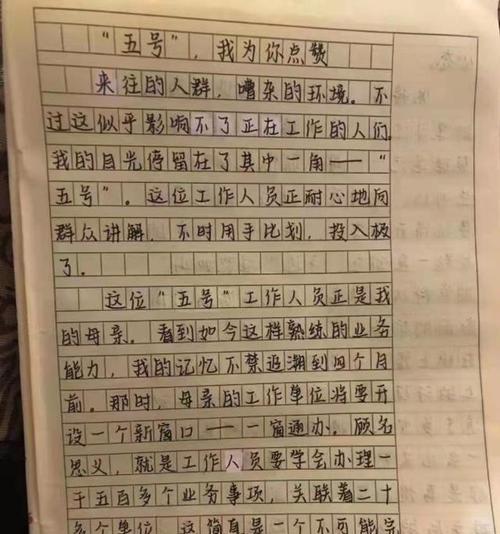 “五号”，我为你点赞
来往的人群，嘈杂的环境。不
过这似乎影响不了正在工作的人们。
我的目光停留在了其中一角——“
五号”。这位工作人员正耐心地向
群众讲解，不时用手比划，投入极
了。
这位“五号”工作人员正是我
的母亲。看到如今这样熟练的业务
能力，我的记忆不禁追溯到四个月
前。那时，母亲的工作单位将要开
设一个新窗口——一窗通办。顾名
思义，就是工作人员要学会办理一
千五百多个业务事项，关联着二十
多个单位。这简直是一个不可能完